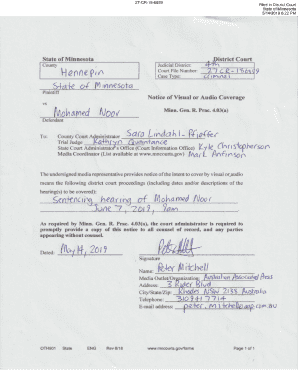 27-CR-18-6859
Filed in District Court
State of Minnesota
5/14/2019 6:22 PM
State of Minnesota District Court
County Judicial District: 4th
Hennepin Court File Number:
Case Type: Criminal
State of Minnesota
Plaintiff
vs Notice of Visual or Audio Coverage
Mohamed Noor Minn. Gen. R. Prac. 4.03(a)
Defendant
To: County Court Administrator Sara Lindahl-Pfieffer
Trial Judge Kathryn Quaintance
State Court Administrator's Office (Court Information Office) Kyle Christopherson
Media Coordinators (List available at www.mncourts.gov) Mark Anfinson
The undersigned media representative provides notice of the intent to cover by visual or audio
means the following district court proceedings (including dates and/or descriptions of the
hearing(s) to be covered):
Sentencing hearing of Mohamed Noor
June 7, 2019, 9am
As required by Minn. Gen. R. Prac. 4.03(a), the court administrator is required to
promptly provide a copy of this notice to all counsel of record, and any parties
appearing without counsel.
Dated: May 14, 2019
Signature
Name: Peter Mitchell
Media Outlet/Organization: Australian Associated Press
Address: 3 Rider Blvd
City/State/Zip: Rhodes NSW 2138 Australia
Telephone: 3109417714
E-mail address:
CIT4601 State ENG Rev 8/18 www.mncourts.gov/forms Page 1 of 1